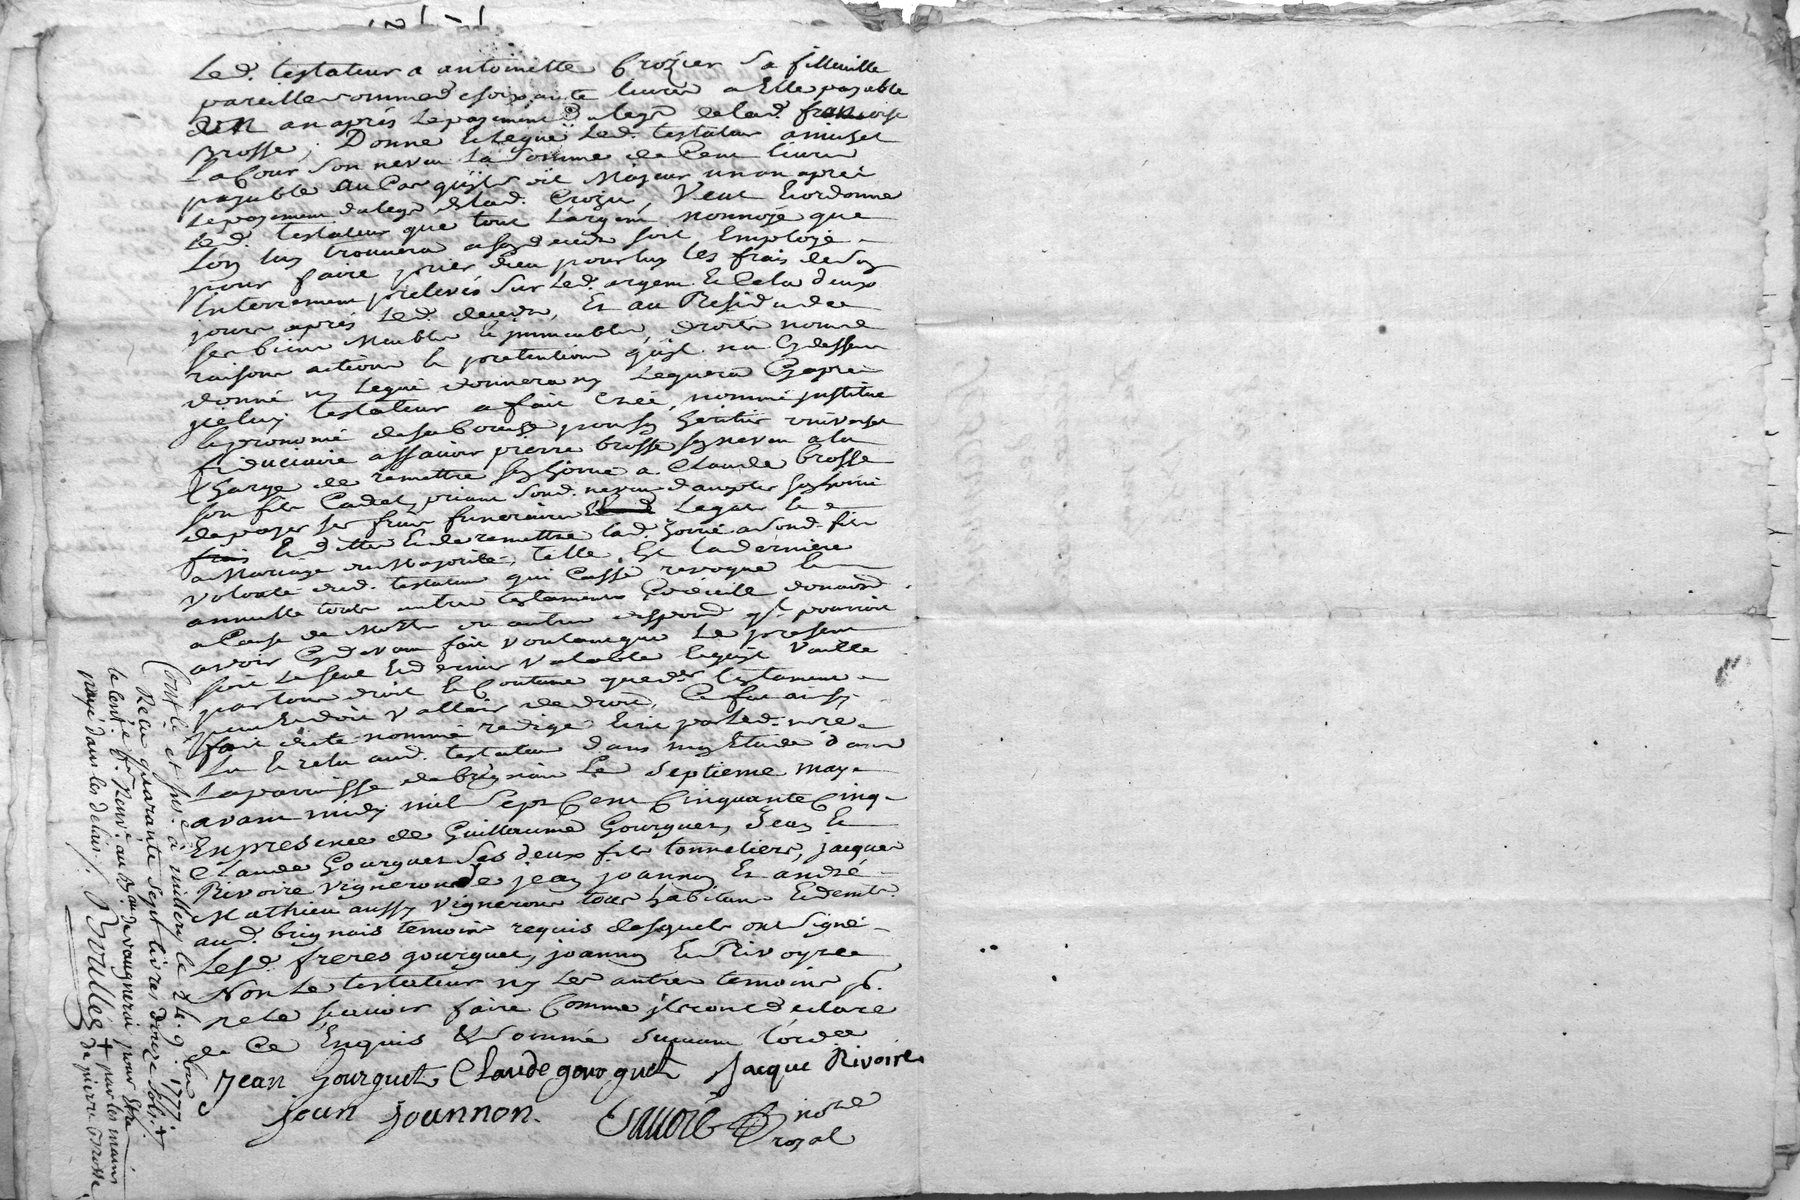 Led. testateur a antoinette Crozier sa filleuille
pareille somme de soixante livres a Elle payable
un an après Le payement du legs de lad. francoise
Brosse; Donne et legue Led. testateur a
Labour son neveu La somme de Cent livres
payable au Cas quil soit Majeur un an après
Le payement du legs de lad. Crozier, Veut Et ordonne
Led. testateur que tout L'argent monnoyé que
Lon luy trouvera a son deces soit Employé
pour faire prier dieu pour luy les frais de son
Enterrement prelevés sur Led. argent Et Cela deux
jours après Led. deceds, Et au Residu de
ses biens Meubles et jmmeubles, droits noms
raisons actions et pretentions quil na Cy dessus
donné ny Legué donnera ny Leguera Cy après
jceluy testateur a fait Créé, nommé justitué
et prononcé de sa bouche pour son heritier universel
fiduciaire assavoir pierre brosse son neveu a la
Charge de remettre son hoirie a Claude brosse
son fils Cadet, priant sond. neveu d'accepter son hoirie
de payer ses frais funeraires Legats et
frais Et dettes Et de remettre lad. hoirie a sond. fils
a Mariage ou Majorité, telle Est la derniere
Volonté dud. testateur qui Casse revoque et
annulle touts autres testaments Codicille donation
a Cause de Mort ou autres dispons. qil pourroit
avoir Cy devant fait voulant que Le present
soit Le seul Et dernier valable Et quil vaille
par tout droit et Coutume que der testament
peut Et doit valloir de droit, Ce fut ainsy
fait dicté nommé redigé Ecrit par led. nore
Lu et relu aud. testateur dans mon Etude dans
La parroisse de brignais Le septieme may
avant midy mil sept Cent Cinquante Cinq
En presence de Guillaume Gourguet, Jean et
Claude Gourguet ses deux fils tonneliers, jacques
Rivoire vigneron de jean joannon Et andré
Mathieu aussy vignerons tous habitans Et demts.
aud. brignais temoins requis desquels ont signé
Lesd. freres gourguet, joannon Et Rivoyre
Non Le testateur ny Les autres temoins pr.
ne le scavoir faire Comme jls ont declaré
de Ce Enquis & sommé suivant l'orde.
Jean Gourguet Claude gourguet Jacque Rivoire
jean joannon. nore
royal
Conttlé et insé. à millery le 24. 9bre 1777.
Reçu quarante sept livres douze sols
le centè. fr. Reservé. au Bau. de vaugneray pour Etre
payé dans les delais. Brullée + par les mains
de pierre Brosse